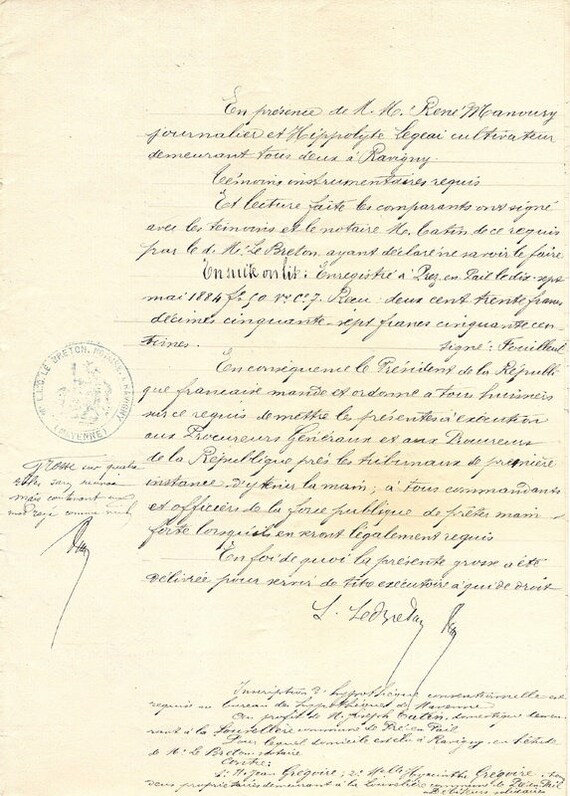 En présence de M. M. René Manoury
journalier et Hippolyte Legeai cultivateur
demeurant tous deux à Ravigny.
témoins instrumentaires requis
Et lecture faite les comparants ont signé
avec les témoins et le notaire M. Catin, de ce requis
par le d. Me Le Breton ayant déclaré ne savoir le faire
En suite on lit : Enregistré à Prez en Pail le dix-sept
mai 1884 fo 50 vo co 7. Recu : deux cent trente francs
décimes cinquante-sept francs cinquante cen-
times. signé : Fouilleul
En conséquence le Président de la Républi-
que francaise mande et ordonne à tous huissiers
sur ce requis de mettre les présentes à exécution
aux Procureurs Généraux et aux Procureurs
de la République près les tribunaux de première
instance d'y tenir la main ; à tous commandants
et officiers de la force publique de prêter main
forte lorsqu'il en seront légalement requis
En foi de quoi la présente grosse a été
délivrée pour servir de titre exécutoire à qui de droit
L. LeBreton
LE BRETON, NOTAIRE A RAVIGNY
(MAYENNE)
Grosse sur quatre
rôles sans renvoi
mais contenant
mot rayé comme nul
Inscription d'hypothèque conventionnelle est
requise au bureau des hypothèques de Mayenne
Au profit de M. Joseph Catin, domestique demeu-
rant à la commune de Pré-en-Pail
Pour lequel domicile est élu à Ravigny, en l'étude
de Me Le Breton notaire
Contre :
1o M. Jean Grégoire ; 2o Melle Hyacinthe Grégoire
deux propriétaires demeurant à la commune de Pré-en-Pail
débiteurs solidaires